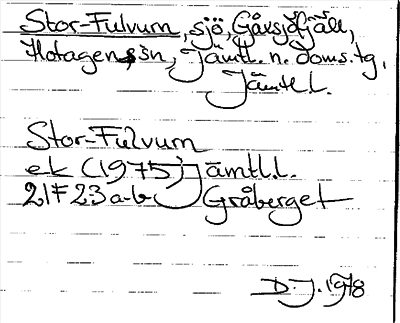 Stor-Fulvurn, sjö, Gåxsjöfjäll,
Hotagens sn, Jämtl. n. doms.tg,
Jämtl.l.
Stor-Fulvurn
ek (1975) Jämtl.l.
21F 23a-b Gråberget
D.J. 1978